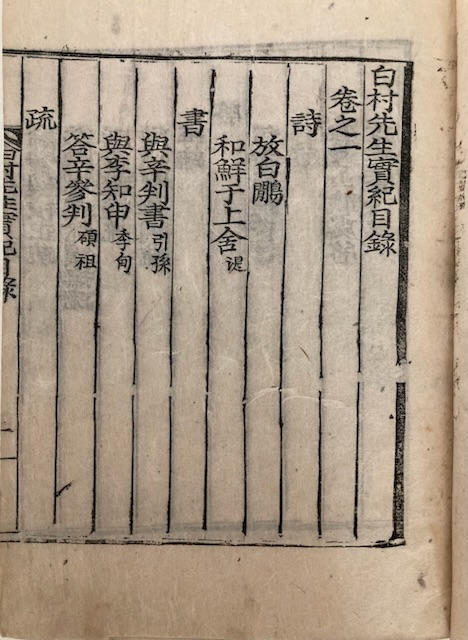 白村先生實紀目錄
卷之一
詩
放白鷴
和鮮于上舍 湜
書
與辛判書 引孫
與李知申 季甸
答辛參判 碩祖
疏
白村先生實紀目錄
一